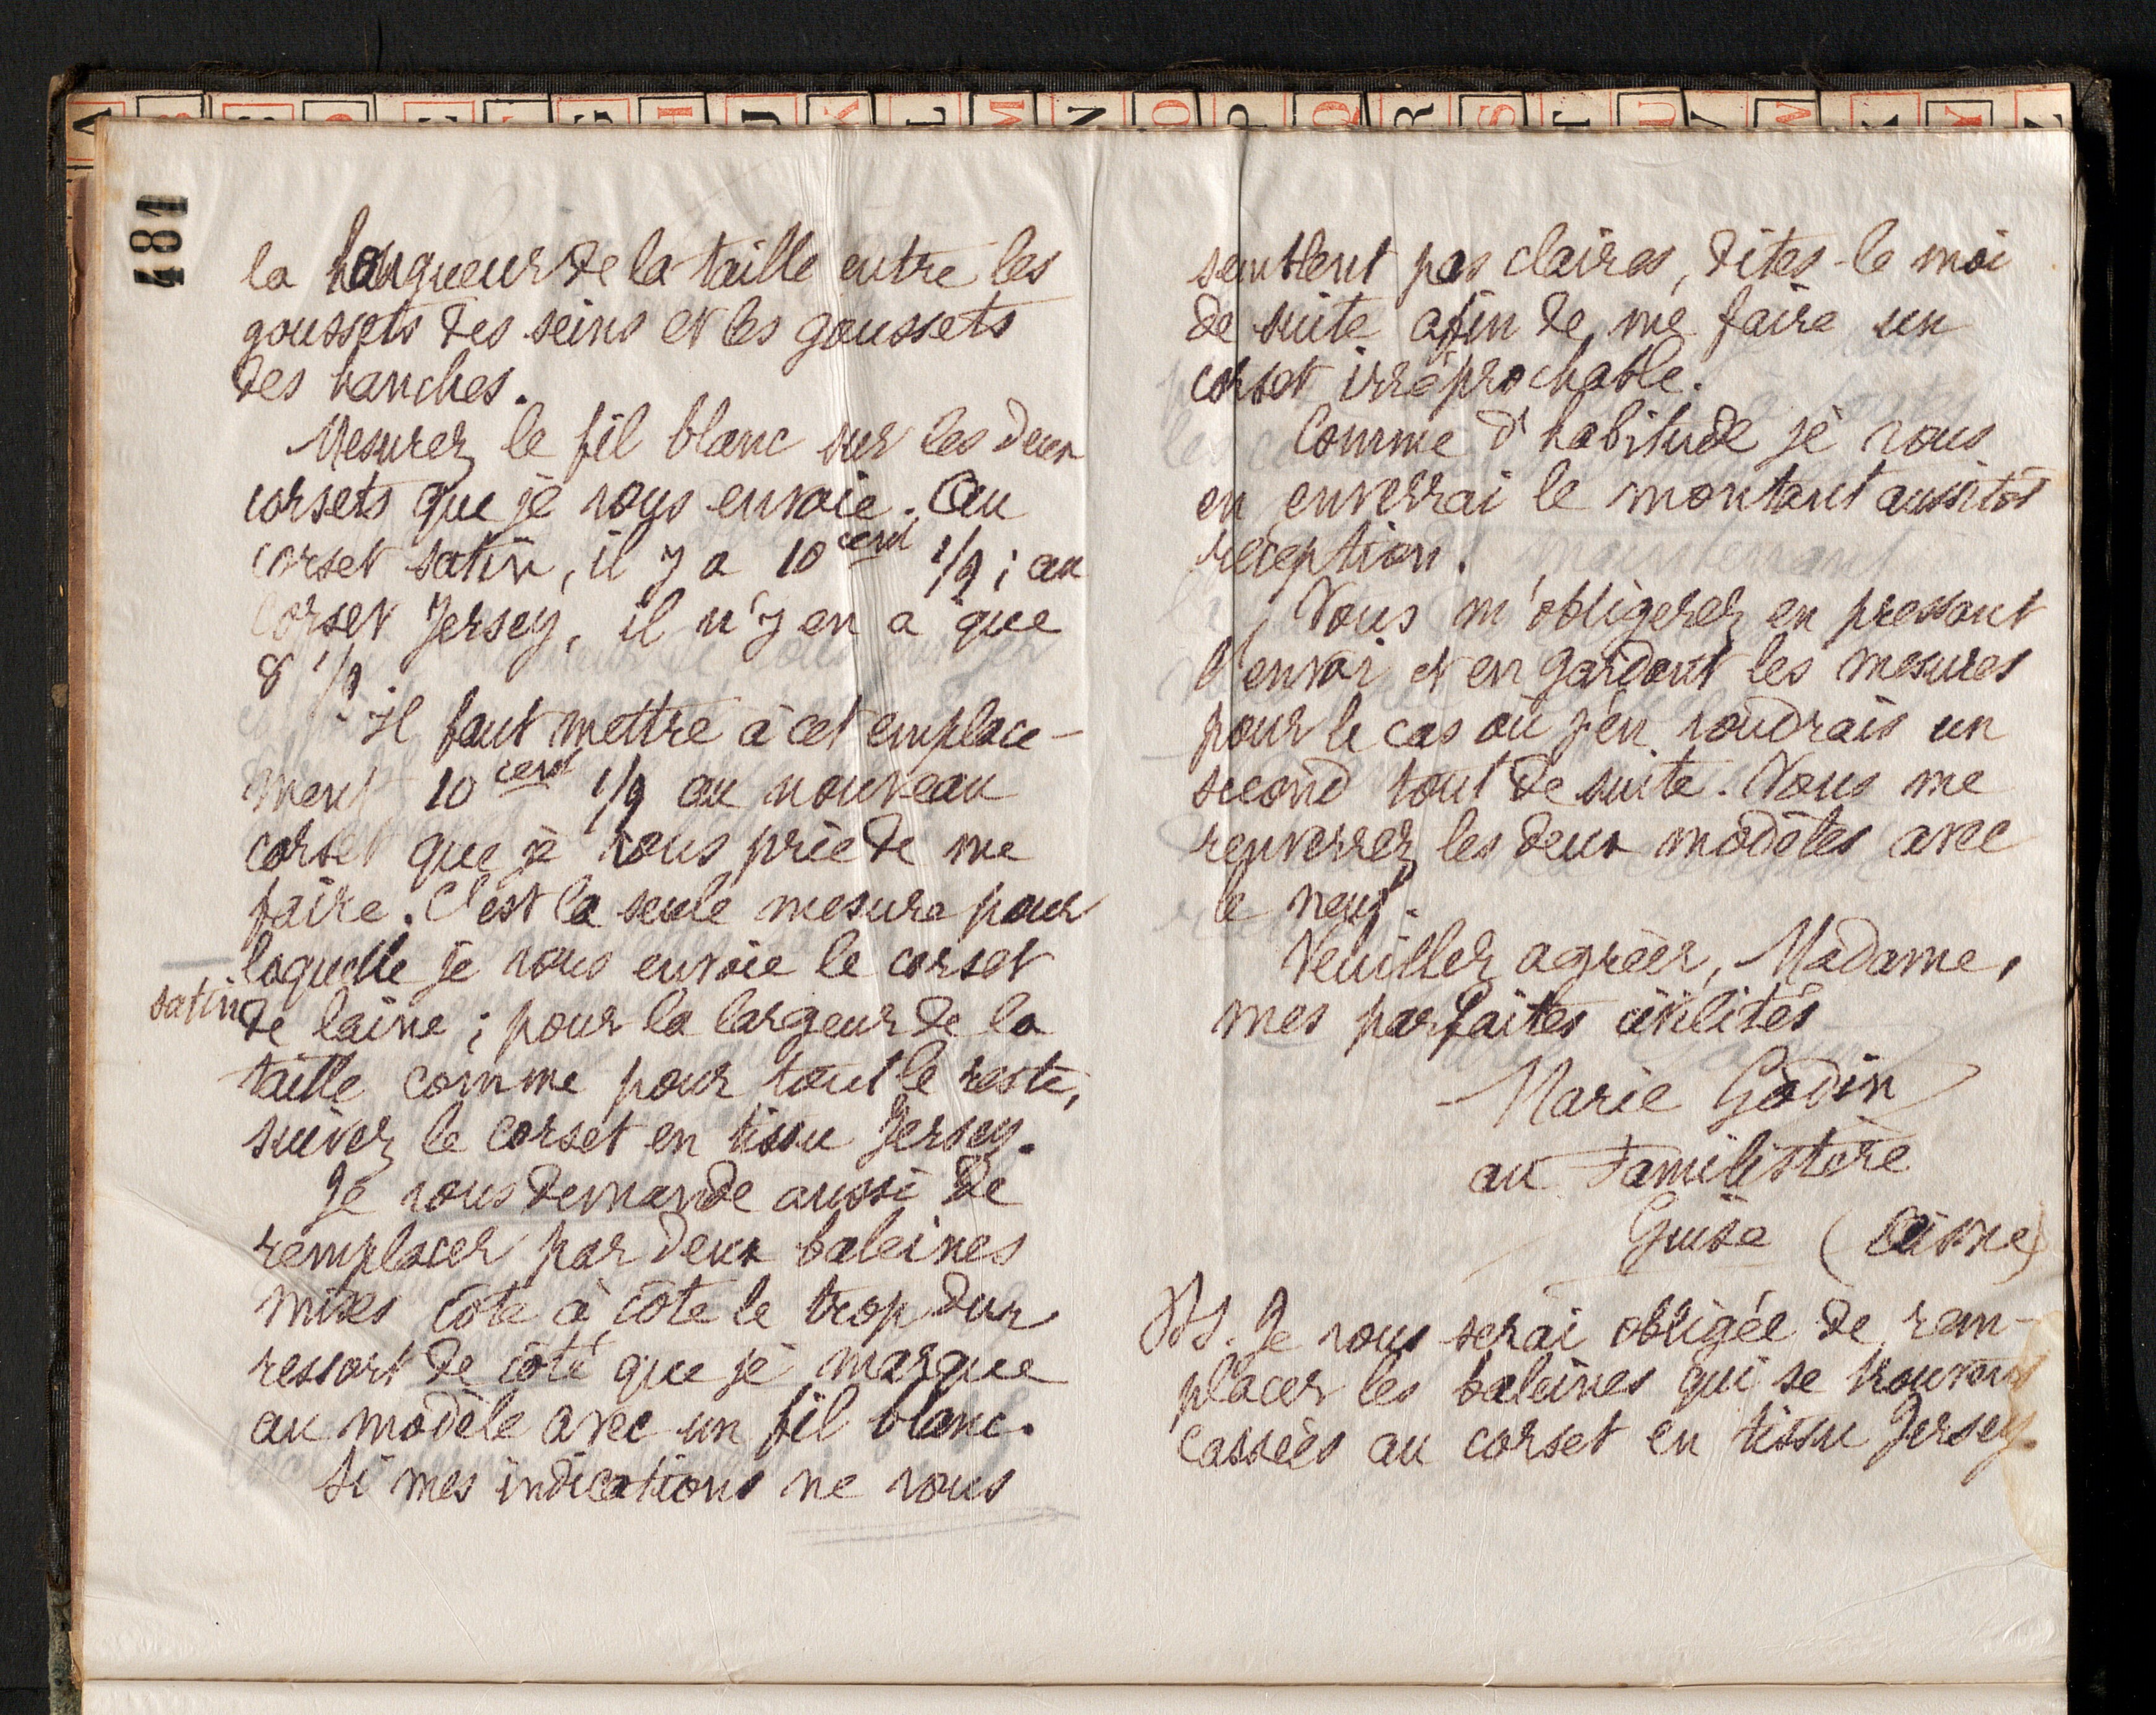 481
la longueur de la taille entre les
goussets des seins et les goussets
des hanches.
Mesurez le fil blanc sur les deux
corsets que je vous envoie. Au
corset satin, il y a 10 cent 1/2 ; au
corset Jersey, il n'y en a que
8 1/2
Il faut mettre à cet emplace-
ment 10 cent 1/2 au nouveau
corset que je vous prie de me
faire. C'est la seule mesure pour
laquelle je vous envoie le corset
satin de laine ; pour la largeur de la
taille comme pour tout le reste,
suivez le corset en tissu Jersey.
Je vous demande aussi de
remplacer par deux baleines
mises côte à côte le trop dur
ressort de côté que je marque
au modèle avec un fil blanc.
Si mes indications ne vous
semblent pas claires, dites-le moi
de suite afin de me faire un
corset irréprochable.
Comme d'habitude je vous
en enverrai le montant aussitôt
réception.
Vous m'obligerez en pressant
l'envoi et en gardant les mesures
pour le cas où j'en voudrais un
second tout de suite. Vous me
renverrez les deux modèles avec
le neuf.
Veuillez agréer, Madame,
mes parfaites civilités
Marie Godin
au Familistère
Guise (Aisne)
PS. Je vous serai obligée de rem-
placer les baleines qui se trouvent
cassées au corset en tissu Jersey.